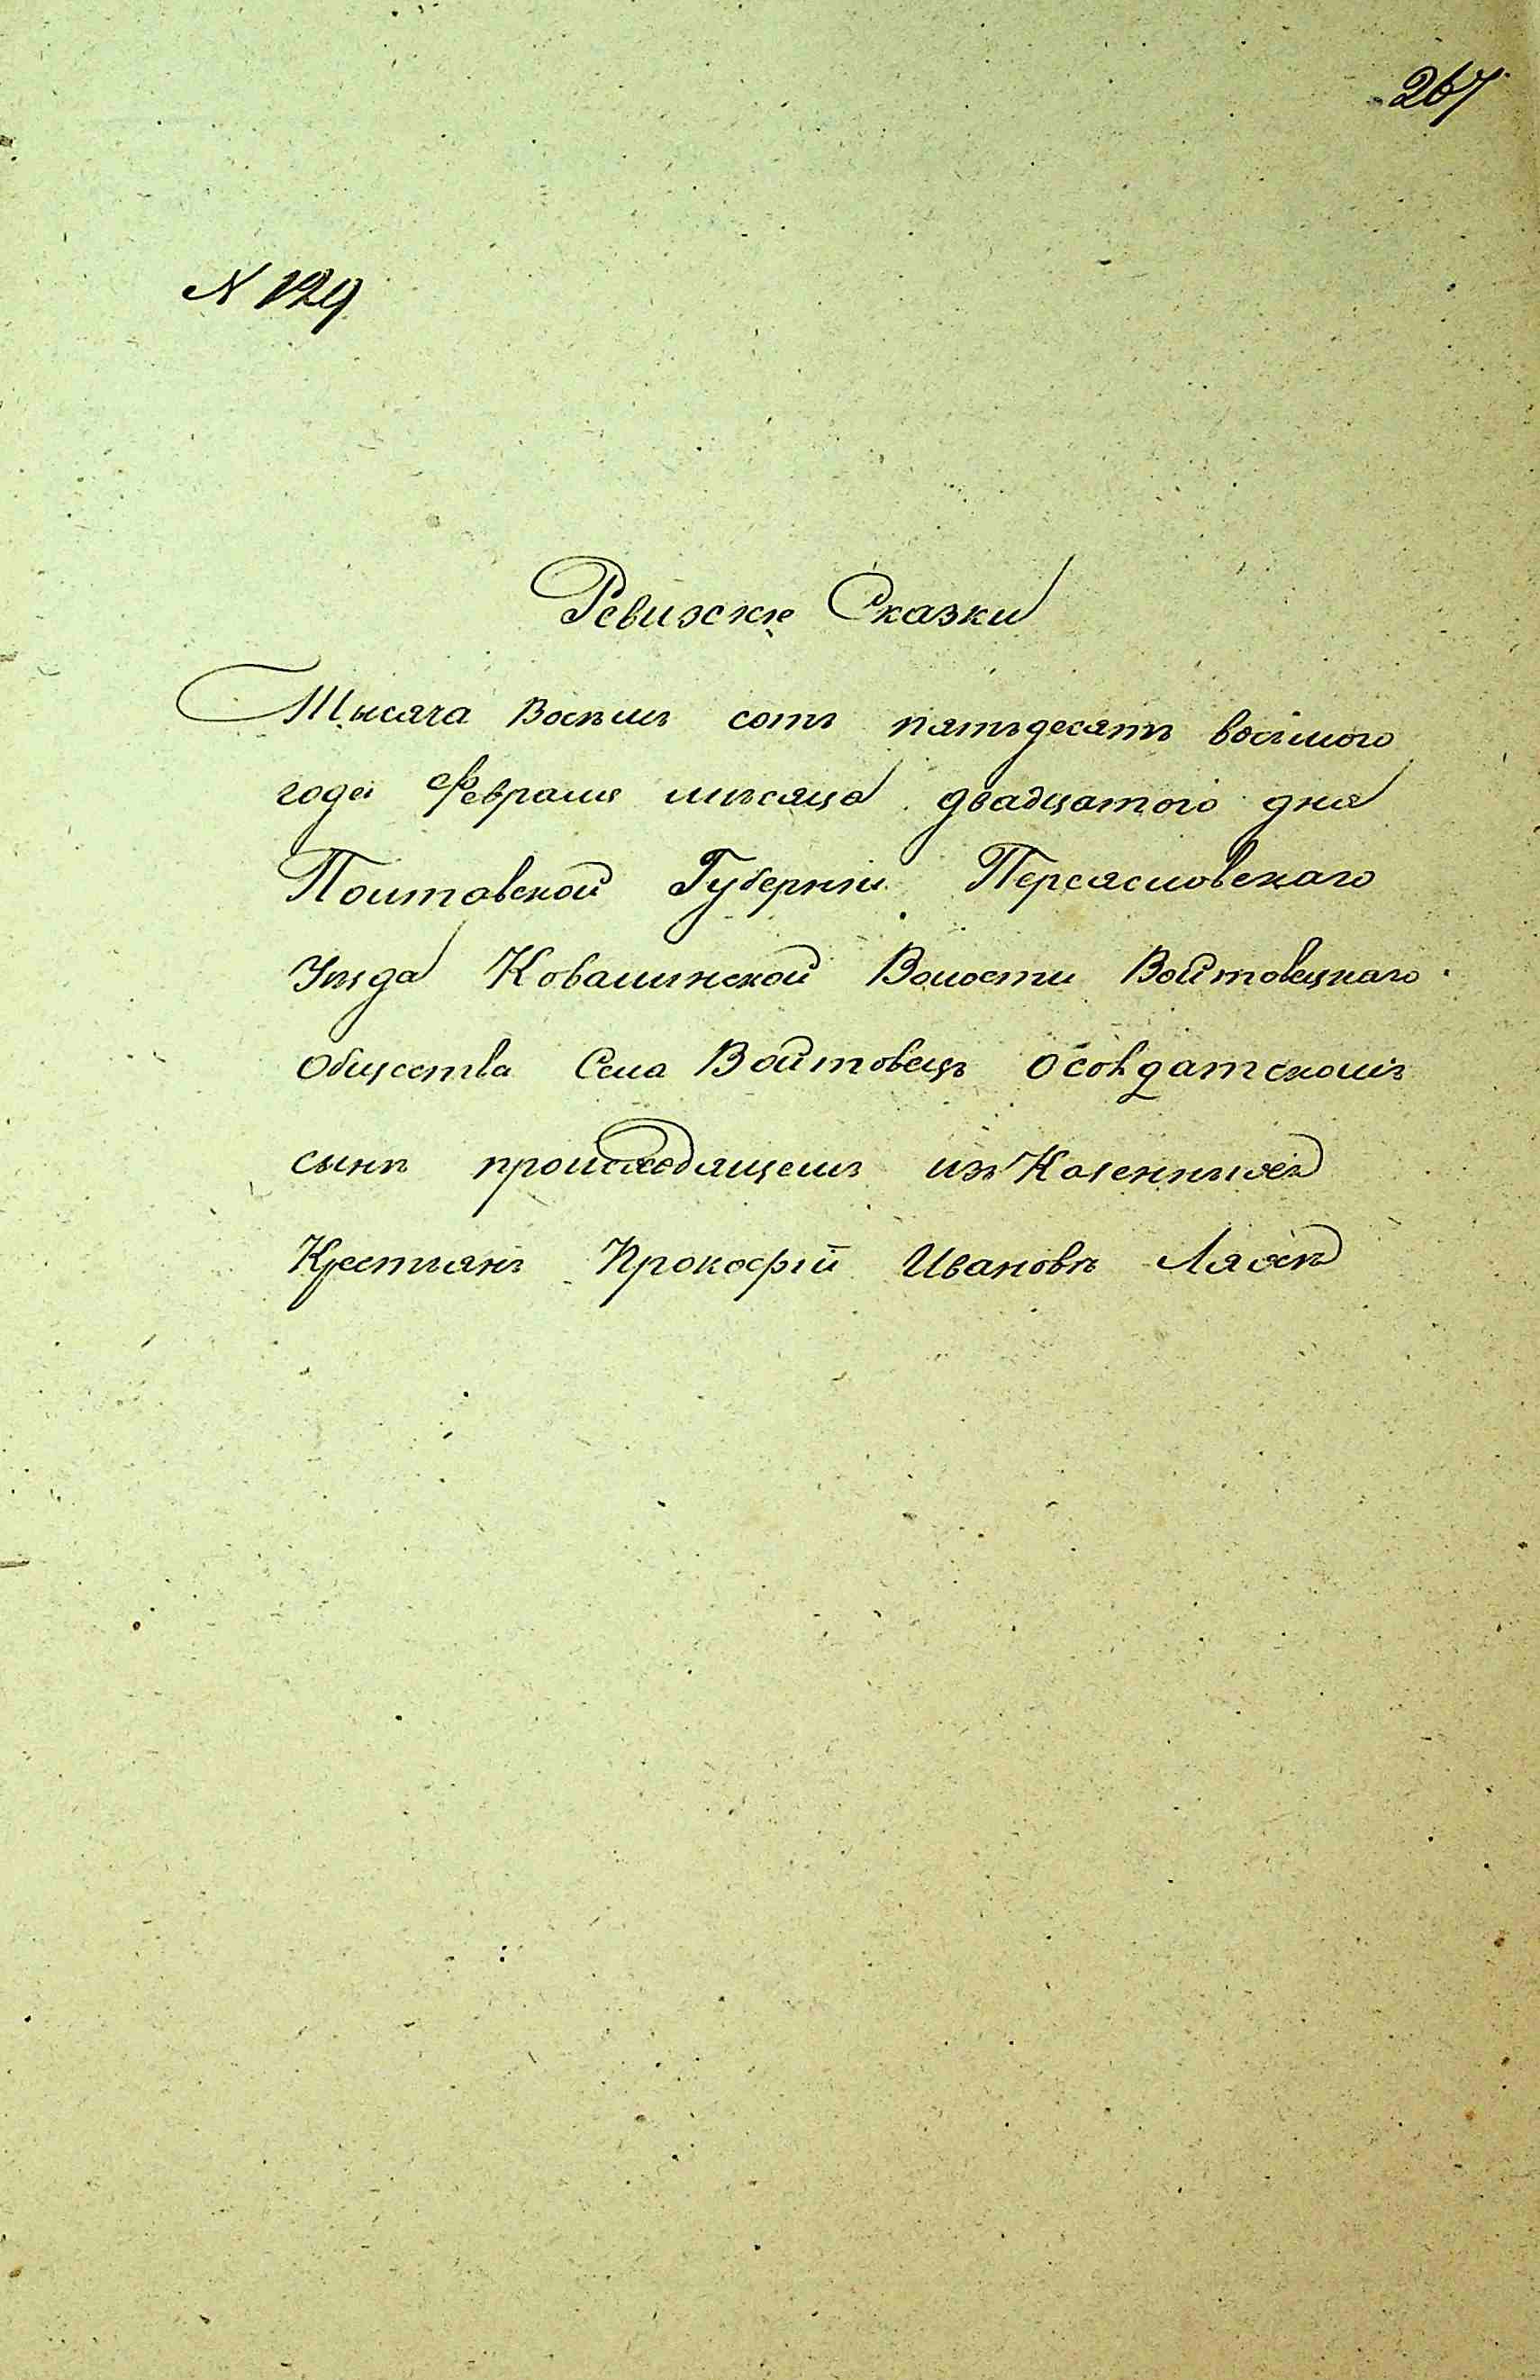 267
N 129
Ревизские Сказки
Тысяча Восемь сотъ пятьдесятъ восьмого
года Февраля мѣсяца двадцатого дня
Полтавской Губерніи Переясловскаго
Уѣзда Ковалинской Волости Войтовецкаго
Общества Села Войтовецъ о солдатскомъ
сынѣ происходящемъ изъ Казенныхъ
Крестьянъ Прокофій Ивановъ Ляхъ